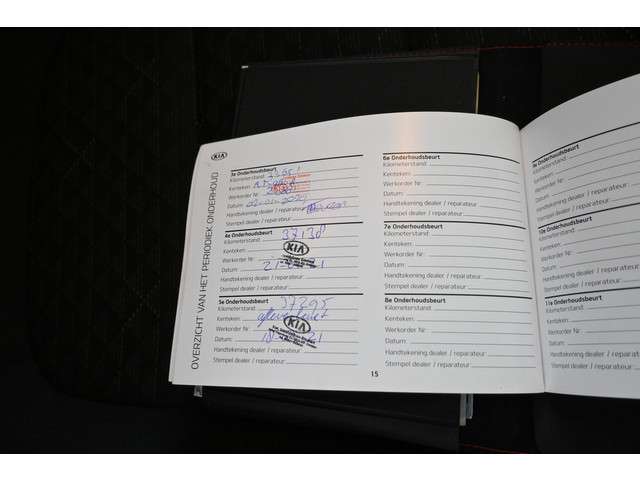 OVERZICHT VAN HET PERIODIEK ONDERHOUD
KIA
3e Onderhoudsbeurt
Kilometerstand:
Kenteken:
Werkorder Nr:
Datum:
Handtekening dealer / reparateur:
Stempel dealer / reparateur:
4e Onderhoudsbeurt
Kilometerstand: 37138
Kenteken: KIA
Werkorder Nr:
Datum:
Handtekening dealer / reparateur:
Stempel dealer / reparateur:
5e Onderhoudsbeurt
Kilometerstand: 37295
Kenteken:
Werkorder Nr: KIA
Datum:
Handtekening dealer / reparateur:
Stempel dealer / reparateur:
6e Onderhoudsbeurt
Kilometerstand:
Kenteken:
Werkorder Nr:
Datum:
Handtekening dealer / reparateur:
Stempel dealer / reparateur:
7e Onderhoudsbeurt
Kilometerstand:
Kenteken:
Werkorder Nr:
Datum:
Handtekening dealer / reparateur:
Stempel dealer / reparateur:
8e Onderhoudsbeurt
Kilometerstand:
Kenteken:
Werkorder Nr:
Datum:
Handtekening dealer / reparateur:
Stempel dealer / reparateur:
15
Kilometerstand:
Kenteken:
Werkorder Nr:
Datum:
Handtekening dealer / reparateur:
Stempel dealer / reparateur:
10e Onderhoudsbeurt
Kilometerstand:
Kenteken:
Werkorder Nr:
Datum:
Handtekening dealer /
Stempel dealer / reparateur:
11e Onderhoudsbeurt
Kilometerstand:
Kenteken:
Werkorder Nr:
Datum:
Handtekening dealer /
Stempel dealer / re